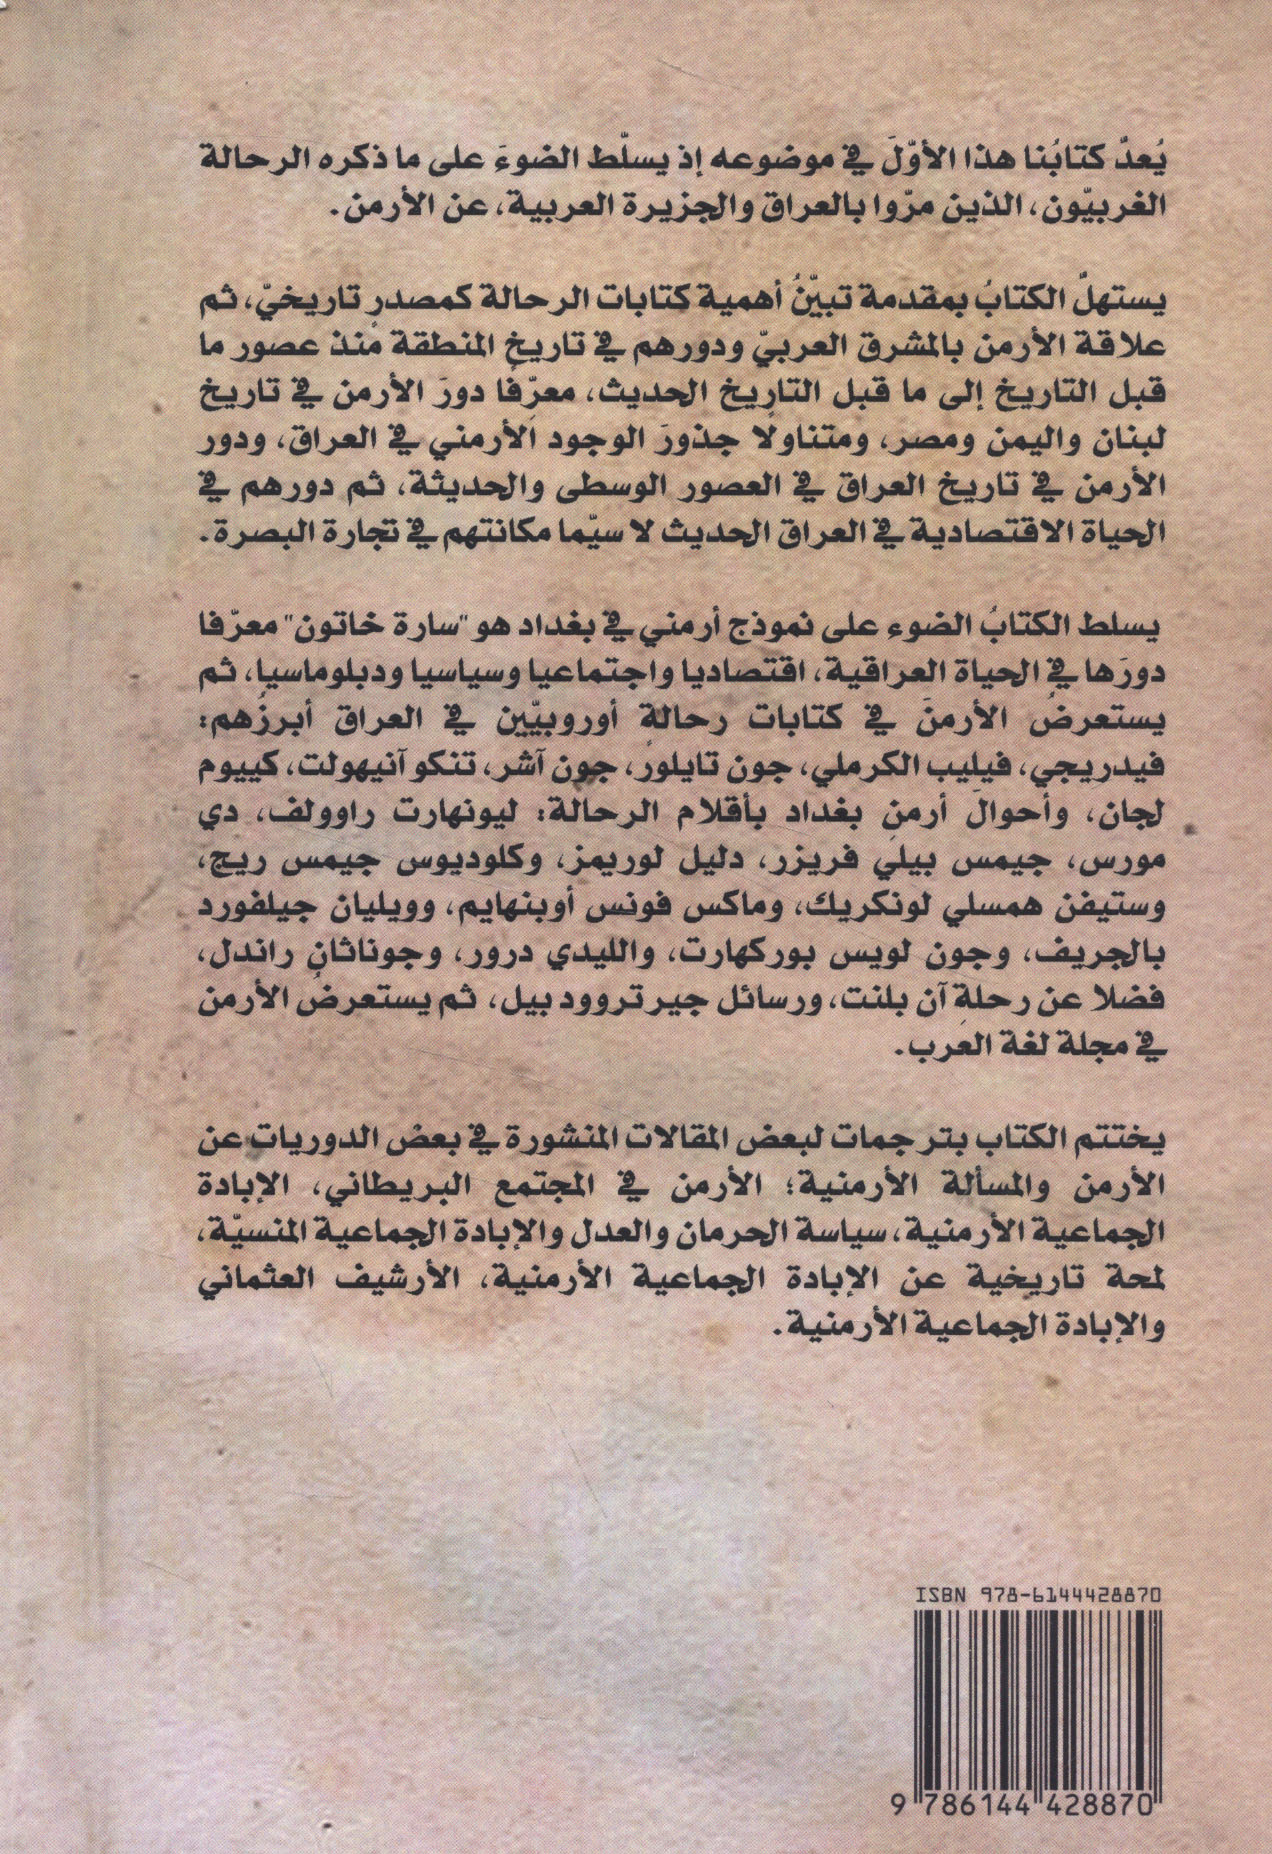 يُعدّ كتابُنا هذا الأوّلَ في موضوعه إذ يسلّط الضوءَ على ما ذكره الرحالة
الغربيّون، الذين مرّوا بالعراق والجزيرة العربية، عن الأرمن.
يستهلّ الكتابُ بمقدمة تبيّنُ أهمية كتابات الرحالة كمصدرٍ تاريخيّ، ثم
علاقة الأرمن بالمشرق العربيّ ودورهم في تاريخ المنطقة مُنذ عصور ما
قبل التاريخ إلى ما قبل التاريخ الحديث، معرّفًا دورَ الأرمن في تاريخ
لبنان واليمن ومصر، ومتناولًا جذورَ الوجود الأرمني في العراق، ودور
الأرمن في تاريخ العراق في العصور الوسطى والحديثة، ثم دورهم في
الحياة الاقتصادية في العراق الحديث لا سيّما مكانتهم في تجارة البصرة.
يسلط الكتابُ الضوء على نموذج أرمني في بغداد هو "سارة خاتون" معرّفا
دورَها في الحياة العراقية، اقتصاديا واجتماعيا وسياسيا ودبلوماسيا، ثم
يستعرضُ الأرمنَ في كتابات رحالةٍ أوروبيّين في العراق أبرزُهم:
فيدريجي، فيليب الكرملي، جون تايلور، جون آشر، تنكو آنيهولت، كييوم
لجان، وأحوالَ أرمنِ بغداد بأقلام الرحالة: ليونهارت راوولف، دي
مورس، جيمس بيلي فريزر، دليل لوريمز، وكلوديوس جيمس ريج،
وستيفن همسلي لونكريك، وماكس فونس أوبنهايم، وويليان جيلفورد
بالجريف، وجون لويس بوركهارت، والليدي درور، وجوناثان راندل،
فضلا عن رحلةِ آن بلنت، ورسائل جيرتروود بيل، ثم يستعرضُ الأرمن
في مجلة لغة العرب.
يختتم الكتاب بترجمات لبعض المقالات المنشورة في بعض الدوريات عن
الأرمن والمسألة الأرمنية؛ الأرمن في المجتمع البريطاني، الإبادة
الجماعية الأرمنية، سياسة الحرمان والعدل والإبادة الجماعية المنسيّة،
لمحة تاريخية عن الإبادة الجماعية الأرمنية، الأرشيف العثماني
والإبادة الجماعية الأرمنية.
ISBN 978-6144428870
9 786144 428870